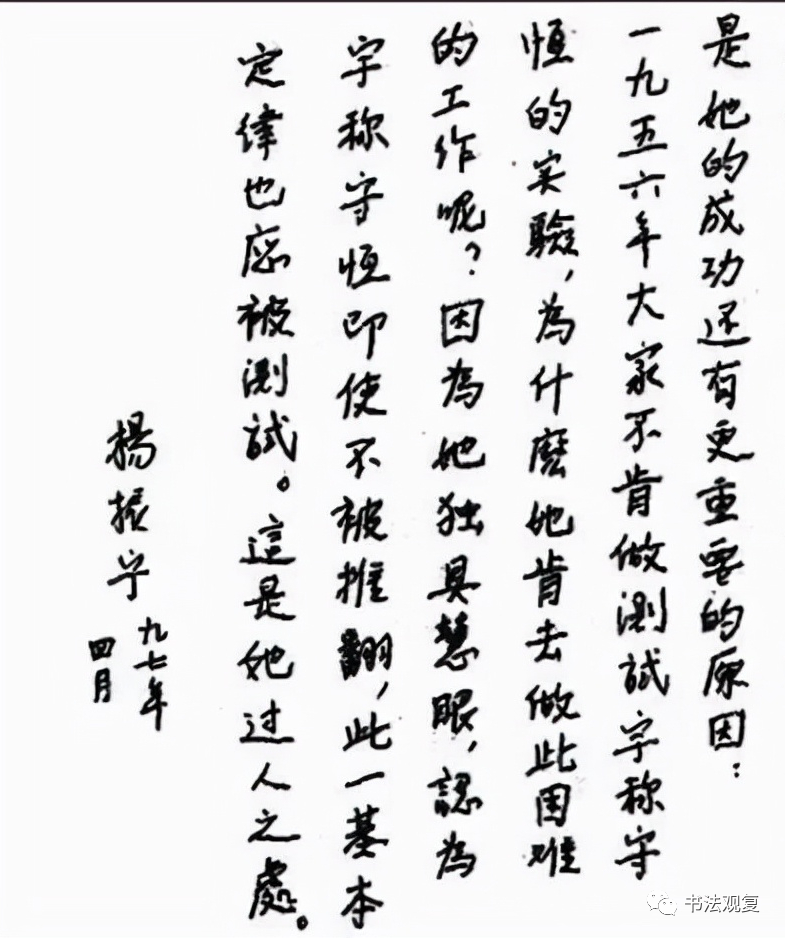 是她的成功还有更重要的原因：
一九五六年大家不肯做測試宇称守
恒的实驗，為什麽她肯去做此困难
的工作呢？因為她独具慧眼，認為
宇称守恒即使不被推翻，此一基本
定律也應被測試。這是她过人之處。
楊振宁
九七年
四月
书法观复